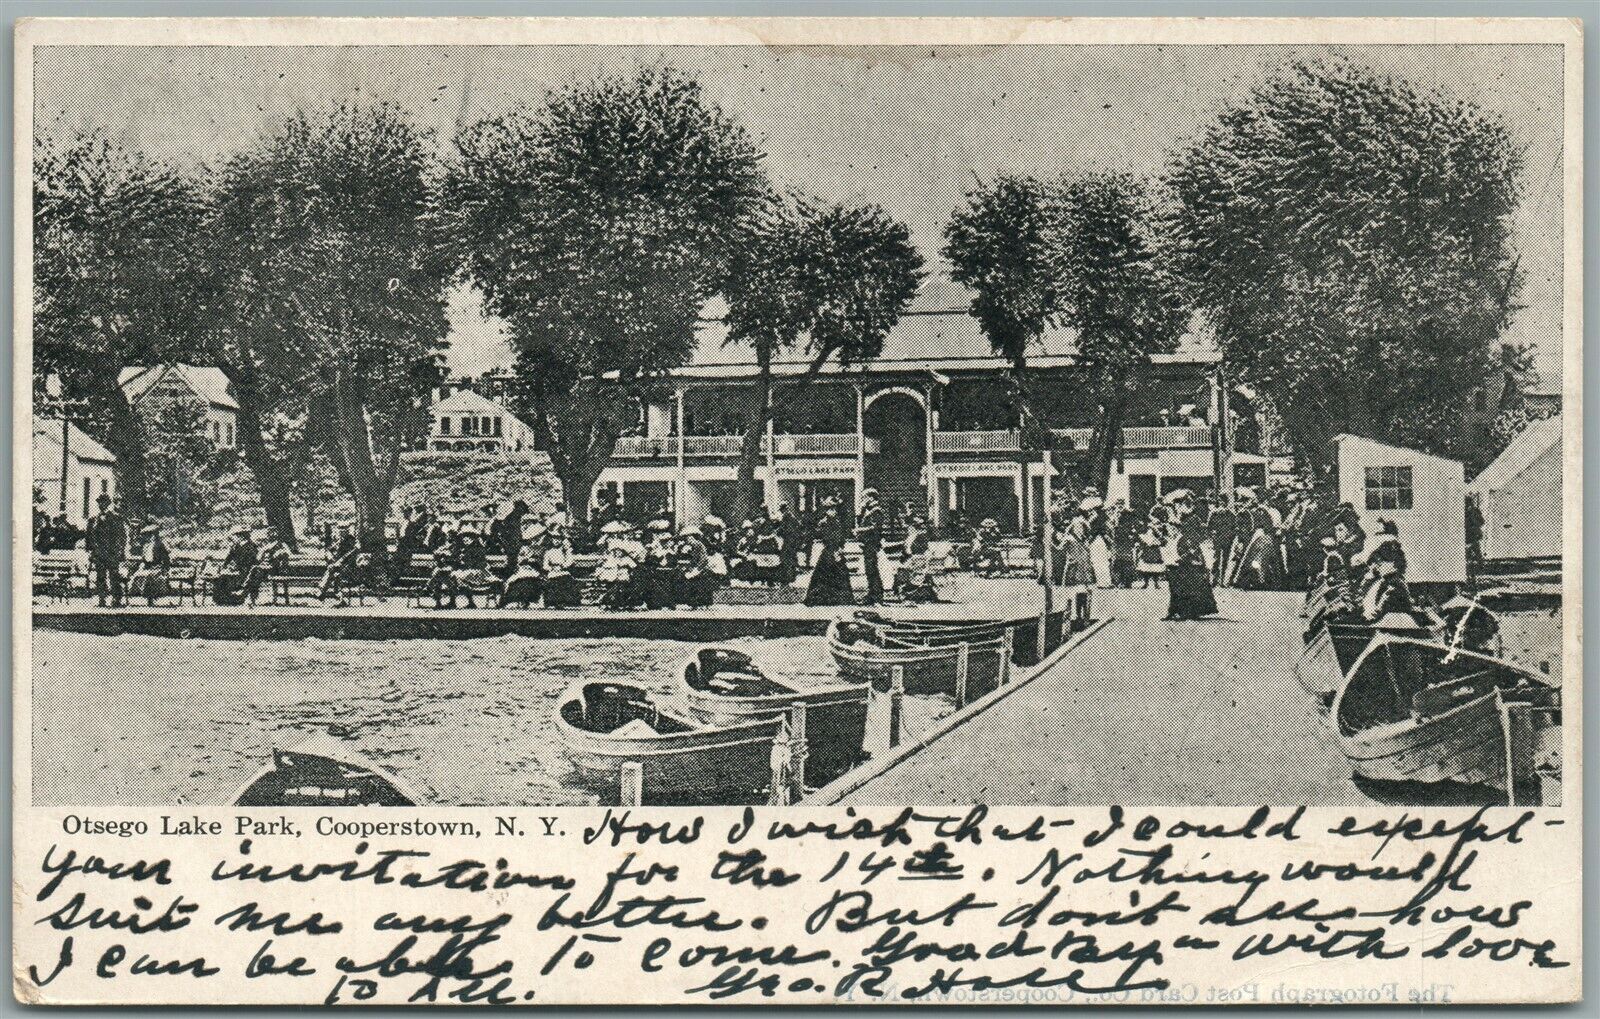 OTSEGO LAKE PARK
OTSEGO LAKE PARK
Otsego Lake Park, Cooperstown, N. Y. How I wish that I could except
your invitation for the 14th. Nothing would
suit me any better. But don't see how
I can be able to come. Good Bye with love
to All. Geo. R Hall
The Fotograph Post Card Co., Cooperstown, N. Y.